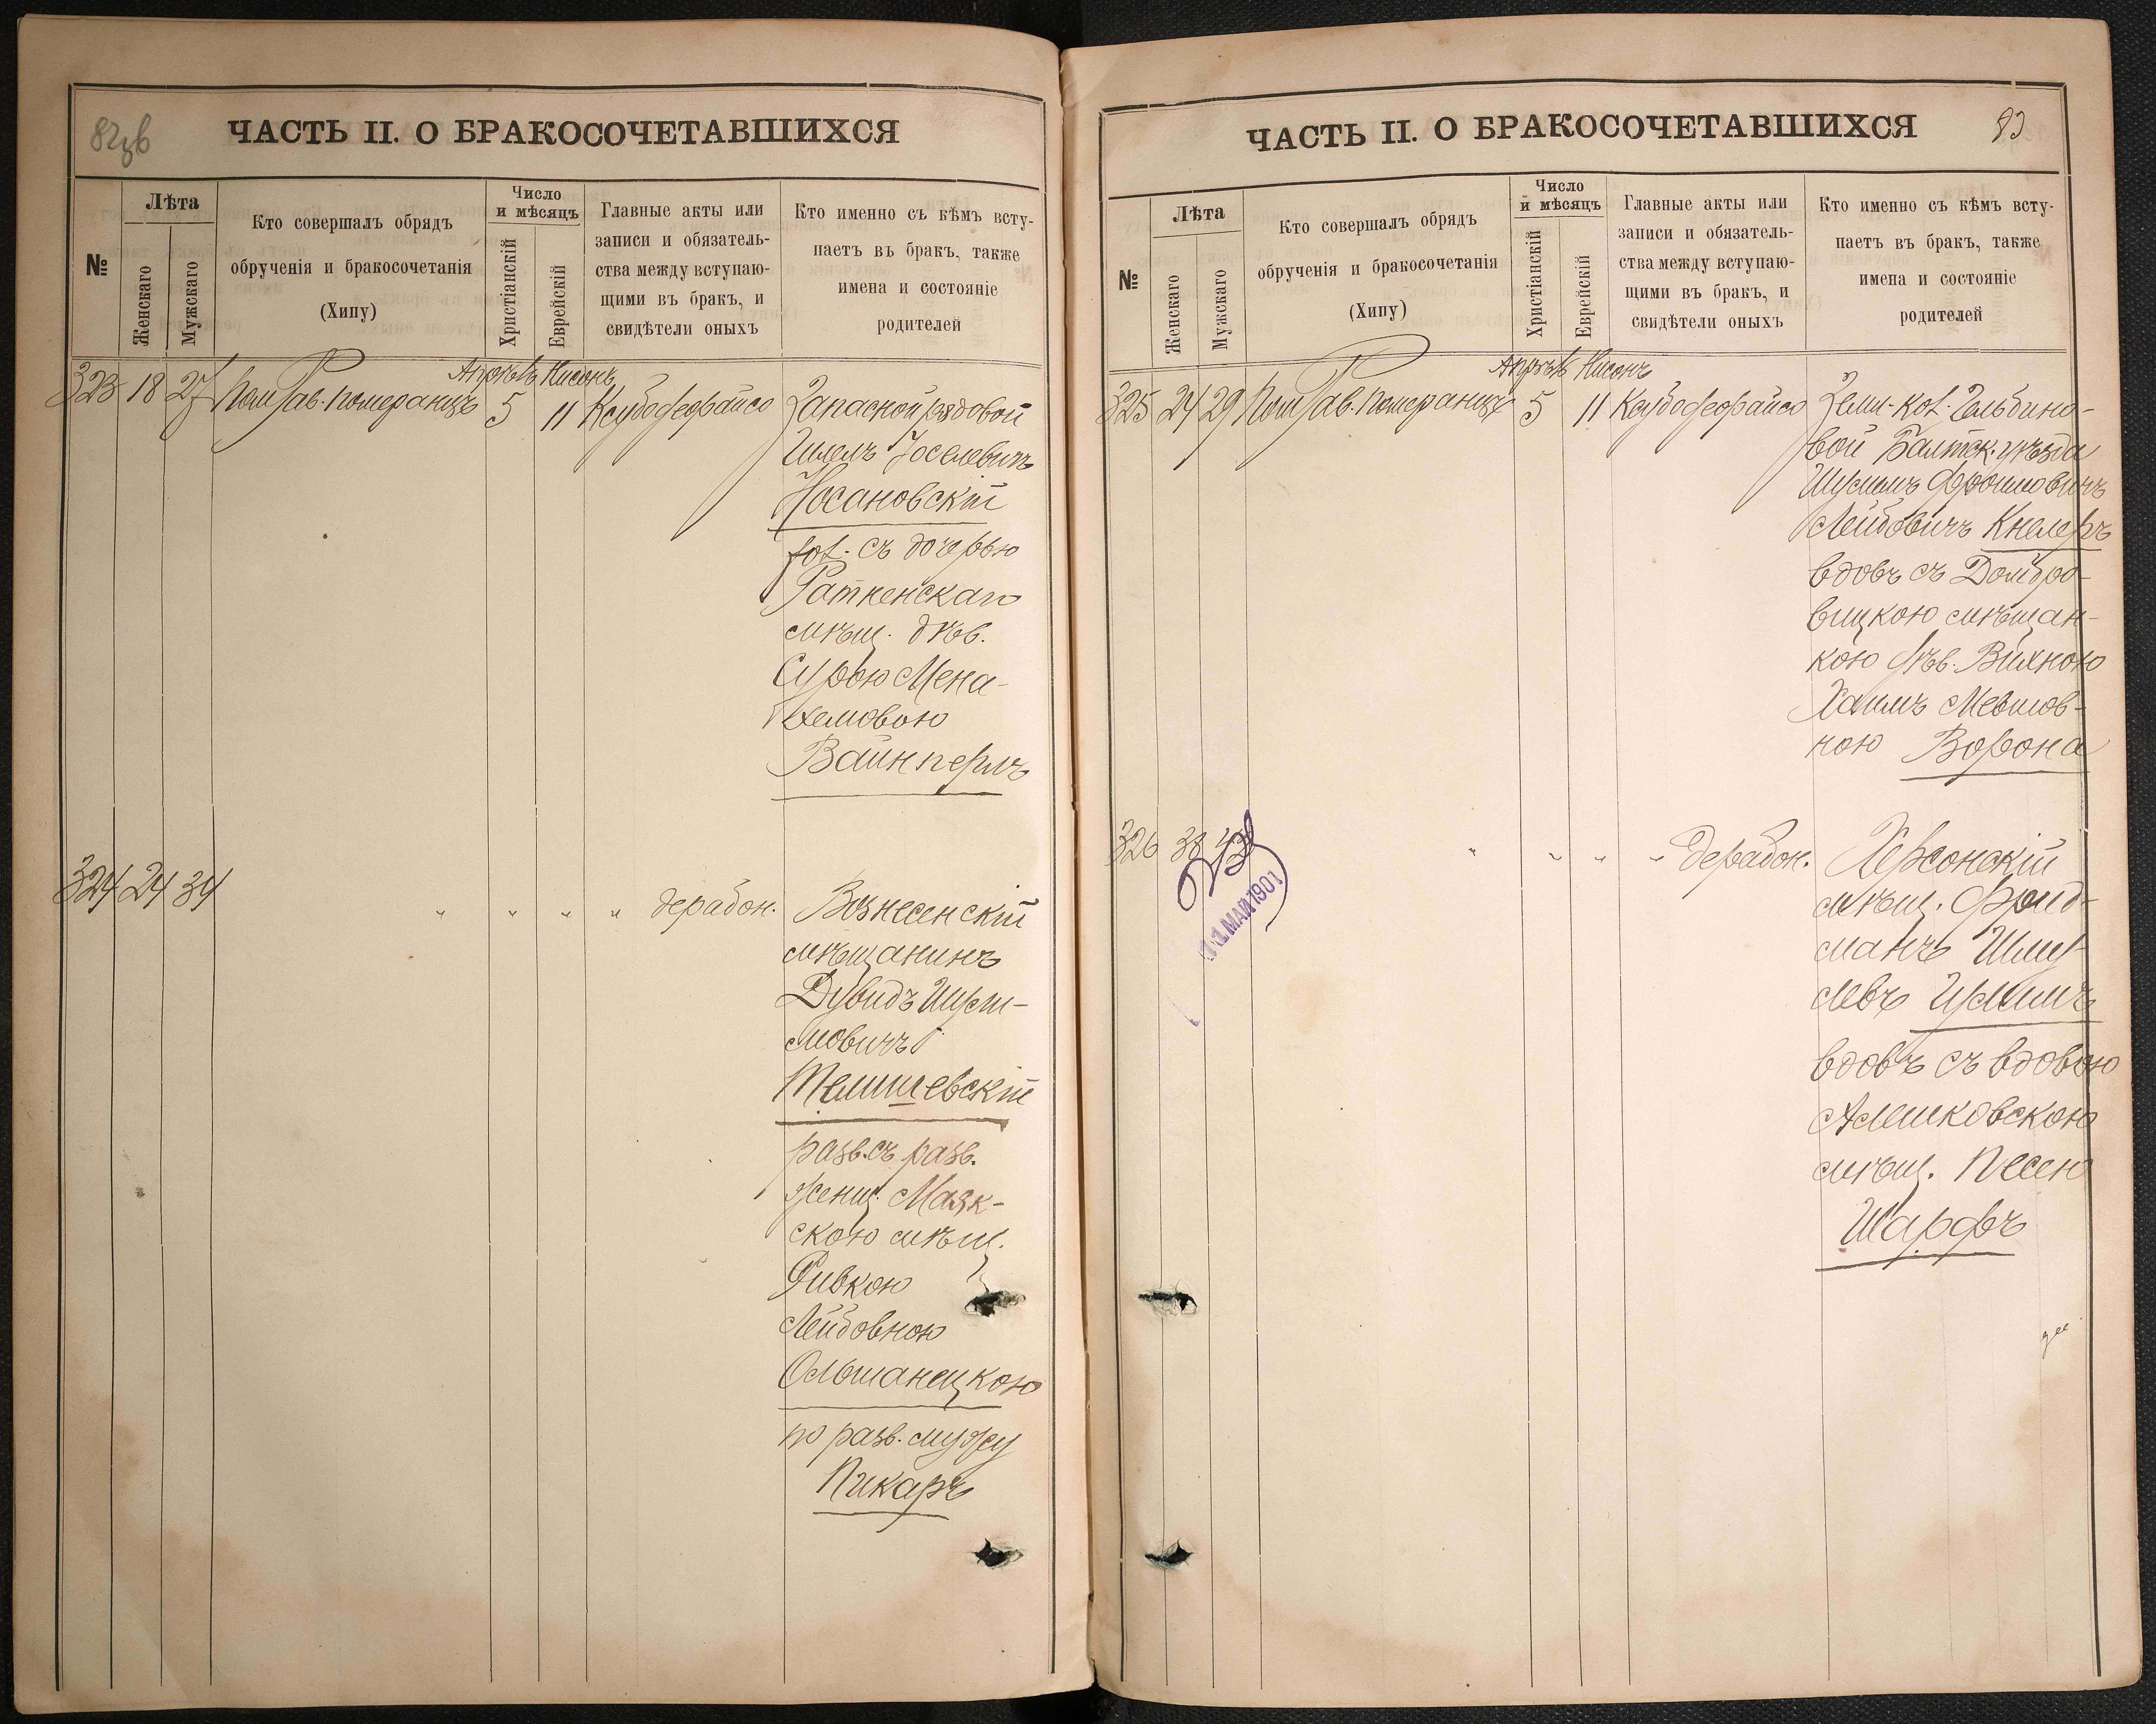 82 об
ЧАСТЬ II. О БРАКОСОЧЕТАВШИХСЯ
№
Лѣта
Женскаго
Мужскаго
Кто совершалъ обрядъ
обрученія и бракосочетанія
(Хипу)
Число
и мѣсяцъ
Христіанскій
Еврейскій
Главные акты или
записи и обязатель-
ства между вступаю-
щими въ бракъ, и
свидѣтели оныхъ
Кто именно съ кѣмъ всту-
паетъ въ бракъ, также
имена и состояніе
родителей
Апрѣль Нисонъ
323 18 27 Пом Рав. Померанцъ 5 11 Ксубофодрайсо
Запасной рядовой
Шлемъ Іоселевичъ
Носановскій
хол. съ дочерью
Ратненскаго
мѣщ. дѣв.
Сурою Мена-
хемовою
Вайнперлъ
324 24 34 " " " " дерабон.
Вознесенскій
мѣщанинъ
Дувидъ Шули-
мовичъ
Телишевскій
разв. съ разв.
женщ. Маяк-
скою мѣщ.
Ривкою
Лейбовною
Ольшанецкою
по разв. мужу
Пикаръ
ЧАСТЬ II. О БРАКОСОЧЕТАВШИХСЯ
83
№
Лѣта
Женскаго
Мужскаго
Кто совершалъ обрядъ
обрученія и бракосочетанія
(Хипу)
Число
и мѣсяцъ
Христіанскій
Еврейскій
Главные акты или
записи и обязатель-
ства между вступаю-
щими въ бракъ, и
свидѣтели оныхъ
Кто именно съ кѣмъ всту-
паетъ въ бракъ, также
имена и состояніе
родителей
Апрѣль Нисонъ
325 24 29 Пом Рав. Померанцъ 5 11 Ксубофодрайсо
Земл. кол. Гольбино-
вой Балтск. уѣзда
Шулимъ Фроимовичъ
Лейбовичъ Кнелеръ
вдовъ съ Домбро-
вицкою мѣщан-
кою дѣв. Вихною
Хаимъ Мевшов-
ною Ворона
326 38 " " " " дерабон.
11 МАЯ 1901
Херсонскій
мѣщ. Фрид-
манъ Шмуль
вдовъ съ вдовою
Алешковскою
мѣщ. Песею
Шарфъ